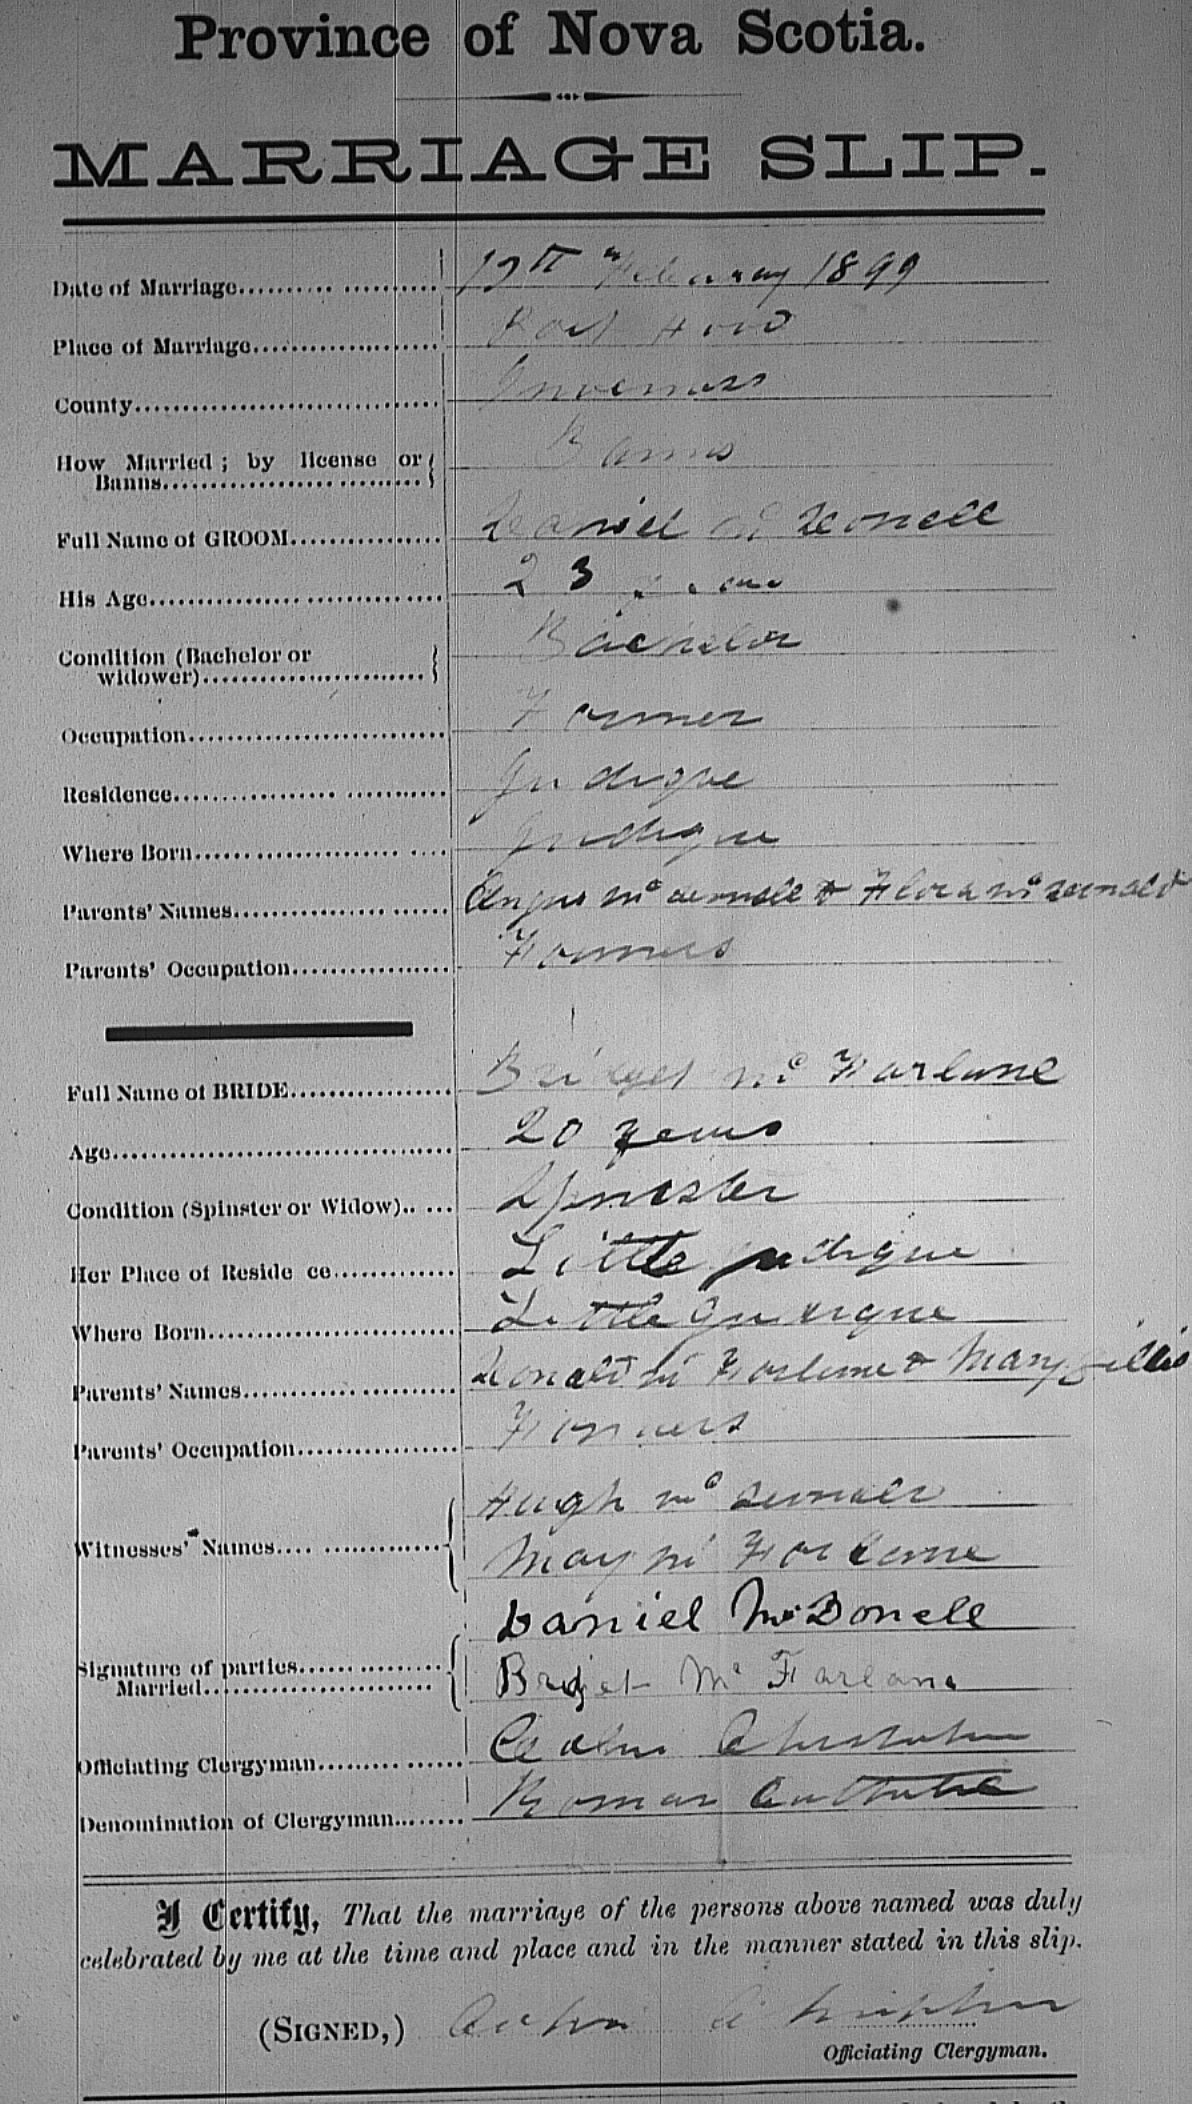 Province of Nova Scotia.
MARRIAGE SLIP.
Date of Marriage 1899
Place of Marriage Port Hood
County Inverness
How Married; by license or Banns Banns
Full Name of GROOM Daniel Mc Donell
His Age 23 years
Condition (Bachelor or widower) Bachelor
Occupation Farmer
Residence Judique
Where Born Judique
Parents' Names Angus Mc Donell & Flora Mc Donald
Parents' Occupation Farmers
Full Name of BRIDE Bridget Mc Farlane
Age 20 years
Condition (Spinster or Widow) Spinster
Her Place of Reside ce Little Judique
Where Born Little Judique
Parents' Names Donald Mc Farlane & Mary Gillis
Parents' Occupation Farmers
Witnesses' Names Hugh Mc
Mary Mc Farlane
Daniel McDonell
Signature of parties Married Bridget Mc Farlane
Officiating Clergyman
Denomination of Clergyman Roman Catholic
I Certify, That the marriage of the persons above named was duly
celebrated by me at the time and place and in the manner stated in this slip.
(SIGNED,)
Officiating Clergyman.